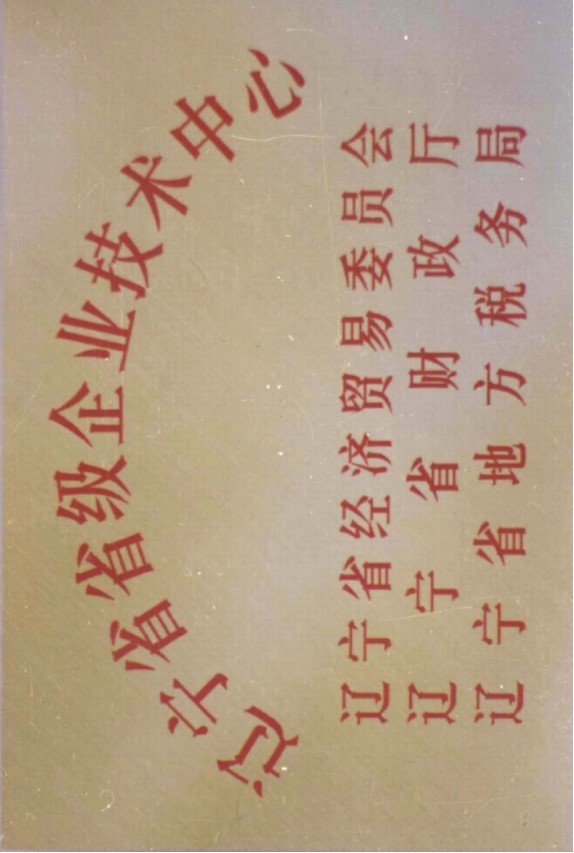 辽宁省省级企业技术中心
辽宁省经济贸易委员会
辽宁省财政厅
辽宁省地方税务局